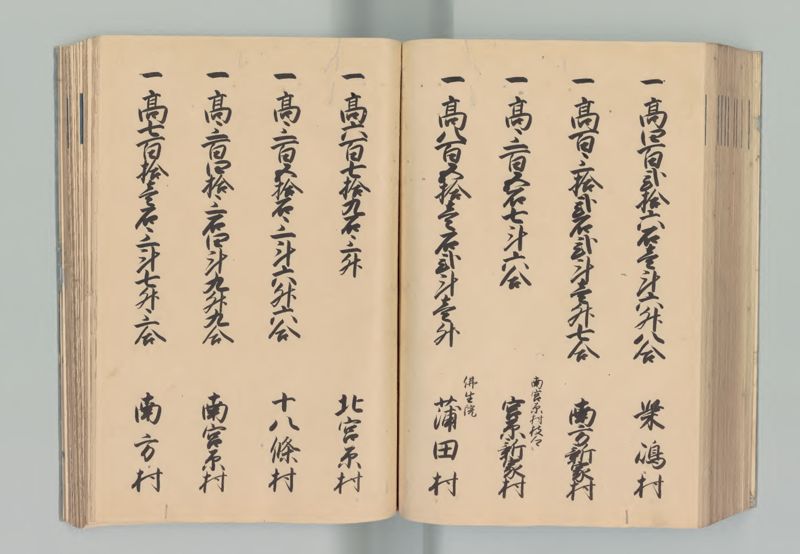 一高四百弐拾六石壱斗六升八合 柴嶋村
一高百三拾弐石弐斗壱升七合 南方新家村
一高三百五石七斗六合 南宮原村枝郷 宮原新家村
一高八百五拾壱石弐斗壱升 佛生院 蒲田村
一高六百七拾九石三升 北宮原村
一高三百五拾石三斗六升六合 十八條村
一高三百四拾三石四斗九升九合 南宮原村
一高七百拾壱石三斗七升三合 南方村